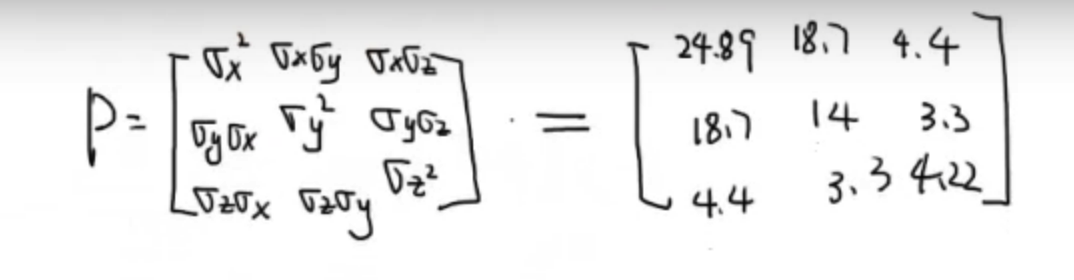 P = [σx² σxσy σxσz; σyσx σy² σyσz; σzσx σzσy σz²] = [24.89 18.7 4.4; 18.7 14 3.3; 4.4 3.3 4.22]